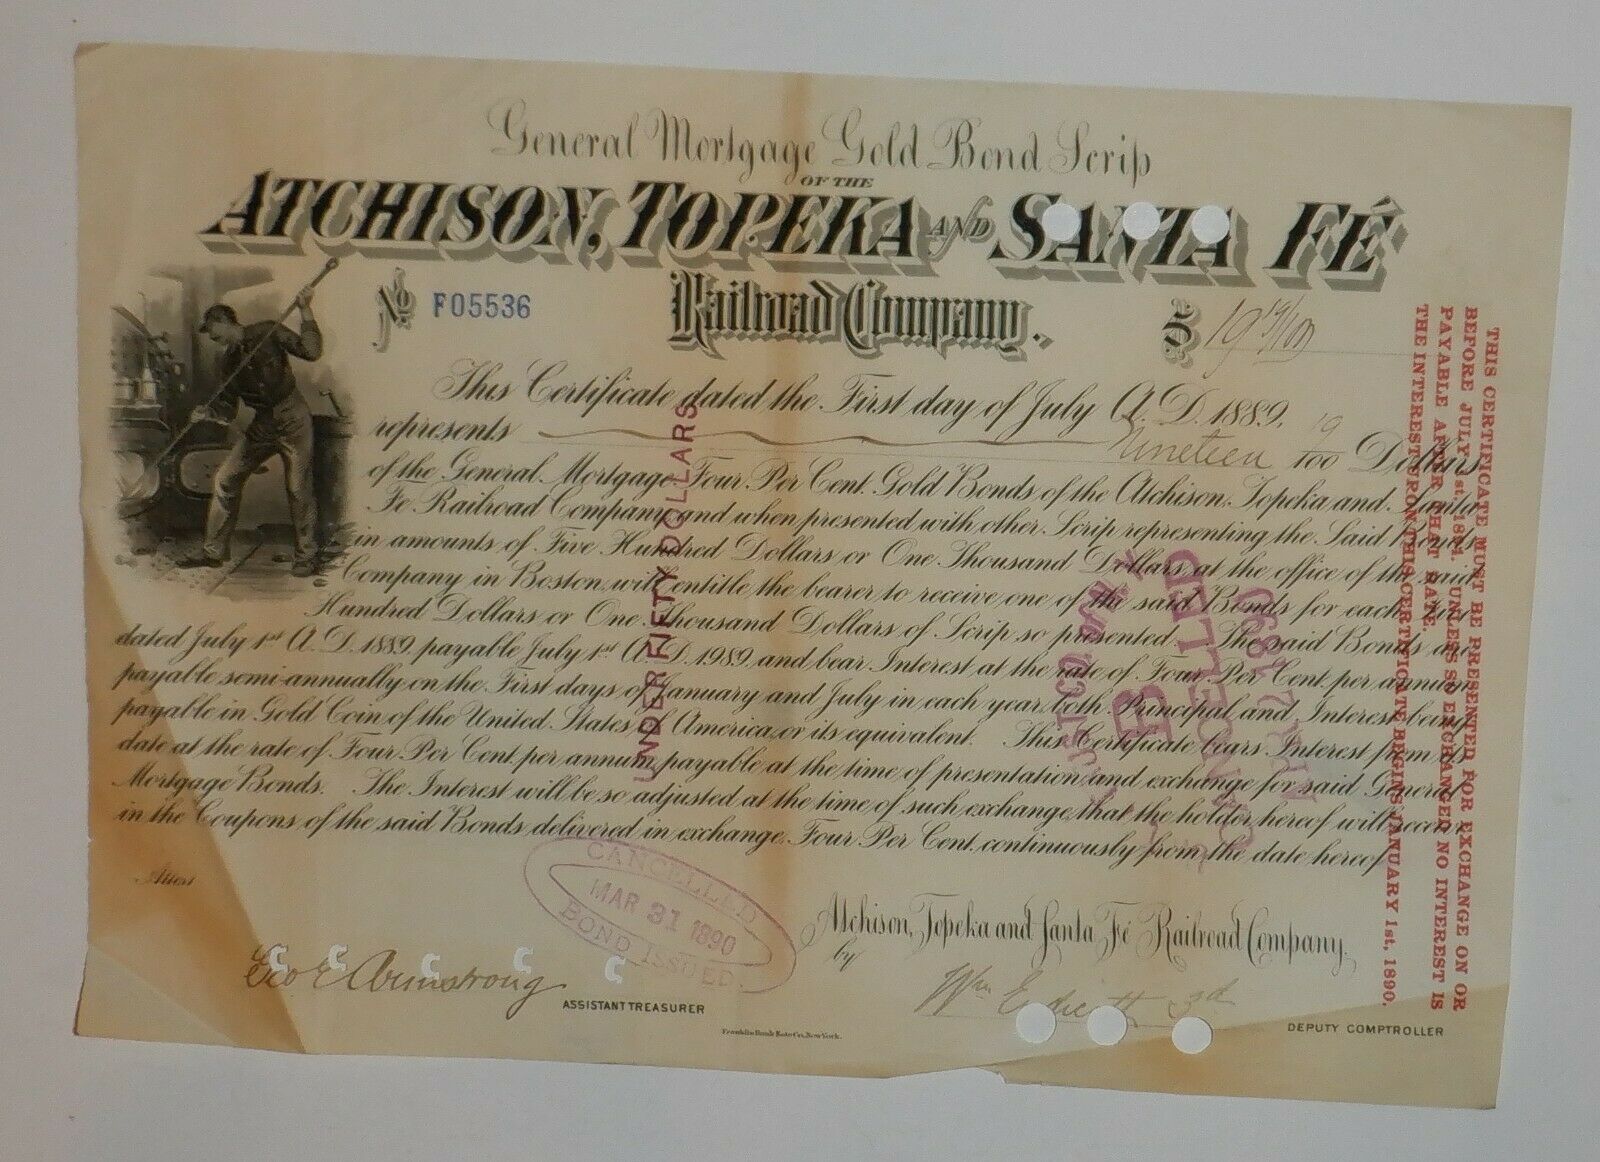 General Mortgage Gold Bond Scrip
OF THE
ATCHISON, TOPEKA AND SANTA FÉ
Railroad Company.
No. F05536
$ 19 19/100
This Certificate dated the First day of July A.D. 1889,
represents Nineteen 19/100 Dollars
of the General Mortgage Four Per Cent. Gold Bonds of the Atchison, Topeka and Santa
Fe Railroad Company and when presented with other Scrip representing the Said Bonds
in amounts of Five Hundred Dollars or One Thousand Dollars, at the office of the said
Company in Boston, will entitle the bearer to receive one of the said Bonds for each Five
Hundred Dollars or One Thousand Dollars of Scrip so presented. The said Bonds are
dated July 1st A.D. 1889, payable July 1st A.D. 1989, and bear Interest at the rate of Four Per Cent. per annum
payable semi-annually on the First days of January and July in each year, both Principal and Interest being
payable in Gold Coin of the United States of America, or its equivalent. This Certificate bears Interest from its
date at the rate of Four Per Cent. per annum, payable at the time of presentation and exchange for said General
Mortgage Bonds. The Interest will be so adjusted at the time of such exchange, that the holder hereof will receive
in the Coupons of the said Bonds delivered in exchange, Four Per Cent. continuously from the date hereof.
Attest
Atchison, Topeka and Santa Fé Railroad Company.
by
Geo E Armstrong
ASSISTANT TREASURER
Wm 3d
DEPUTY COMPTROLLER
Franklin Bank Note Co, New York.
UNDER FIFTY DOLLARS
CANCELLED
MAR 31 1890
BOND ISSUED.
THIS CERTIFICATE MUST BE PRESENTED FOR EXCHANGE ON OR
BEFORE JULY 1st, 1894. UNLESS SO EXCHANGED NO INTEREST IS
PAYABLE AFTER THAT DATE.
THE INTEREST UPON THIS CERTIFICATE BEGINS JANUARY 1st, 1890.